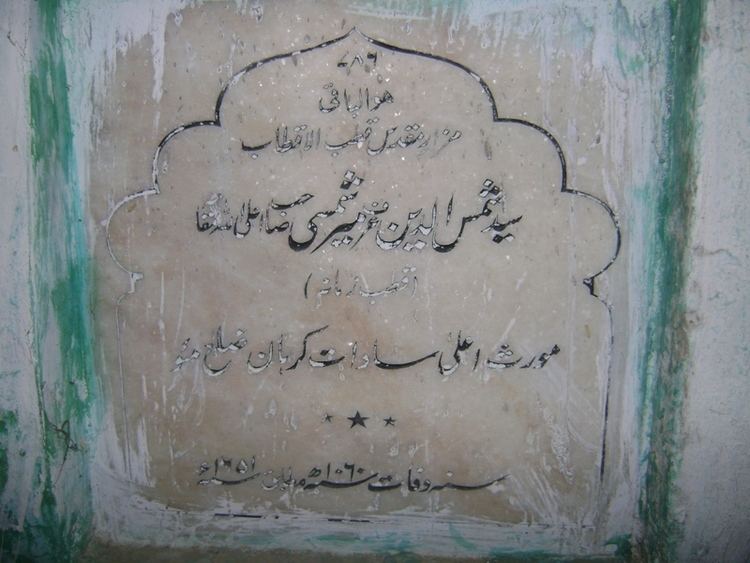 ۷۸۶
ھوالباقی
مزار مقدس قطب الاقطاب
سید شمس الدین عرف میر شمسی صاحب اعلی اللہ مقامہ
(قطب زمانہ)
مورث اعلیٰ سادات کرہان ضلع مئو
سنہ وفات ۱۰۶۰ھ مطابق ۱۶۵۱ء